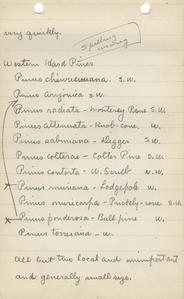 very quickly.
Spelling
wrong
Western Hard Pines
Pinus S.W.
Pinus arizonica S.W.
Pinus radiata - Monterey Pine S.W.
Pinus attenuata - Knob-cone. W.
Pinus sabiniana - Digger S.W.
Pinus - Colter Pine S.W.
Pinus contorta - W. Scrub N.W.
x Pinus murrayana - Lodgepole W.
Pinus muricata - Prickly-cone. S.W.
x Pinus ponderosa - Bull pine W.
Pinus torreyana - W.
All but two local and unimportant
and generally small size.